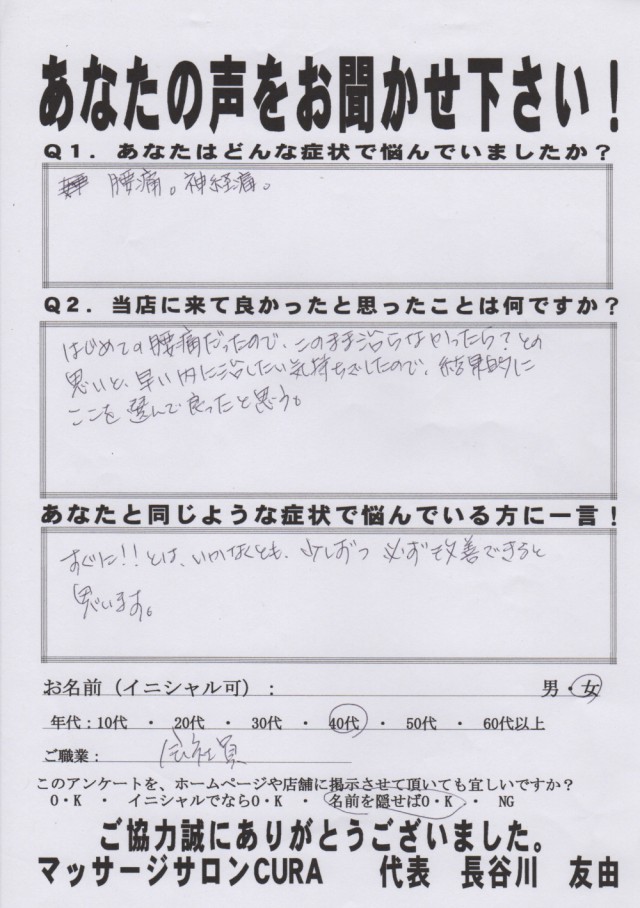 あなたの声をお聞かせ下さい！
Q1．あなたはどんな症状で悩んでいましたか？
腰痛。神経痛。
Q2．当店に来て良かったと思ったことは何ですか？
はじめての腰痛だったので、このまま治らなかったら？との
思いと、早い内に治したい気持ちでしたので、結果的に
ここを選んで良ったと思う。
あなたと同じような症状で悩んでいる方に一言！
すぐに!!とは、いかなくとも、少しずつ必ず改善できると
思います。
お名前（イニシャル可）： 男・女
年代：10代 ・ 20代 ・ 30代 ・ 40代 ・ 50代 ・ 60代以上
ご職業： 会社員
このアンケートを、ホームページや店舗に掲示させて頂いても宜しいですか？
O・K ・ イニシャルでならO・K ・ 名前を隠せばO・K ・ NG
ご協力誠にありがとうございました。
マッサージサロンCURA 代表 長谷川 友由